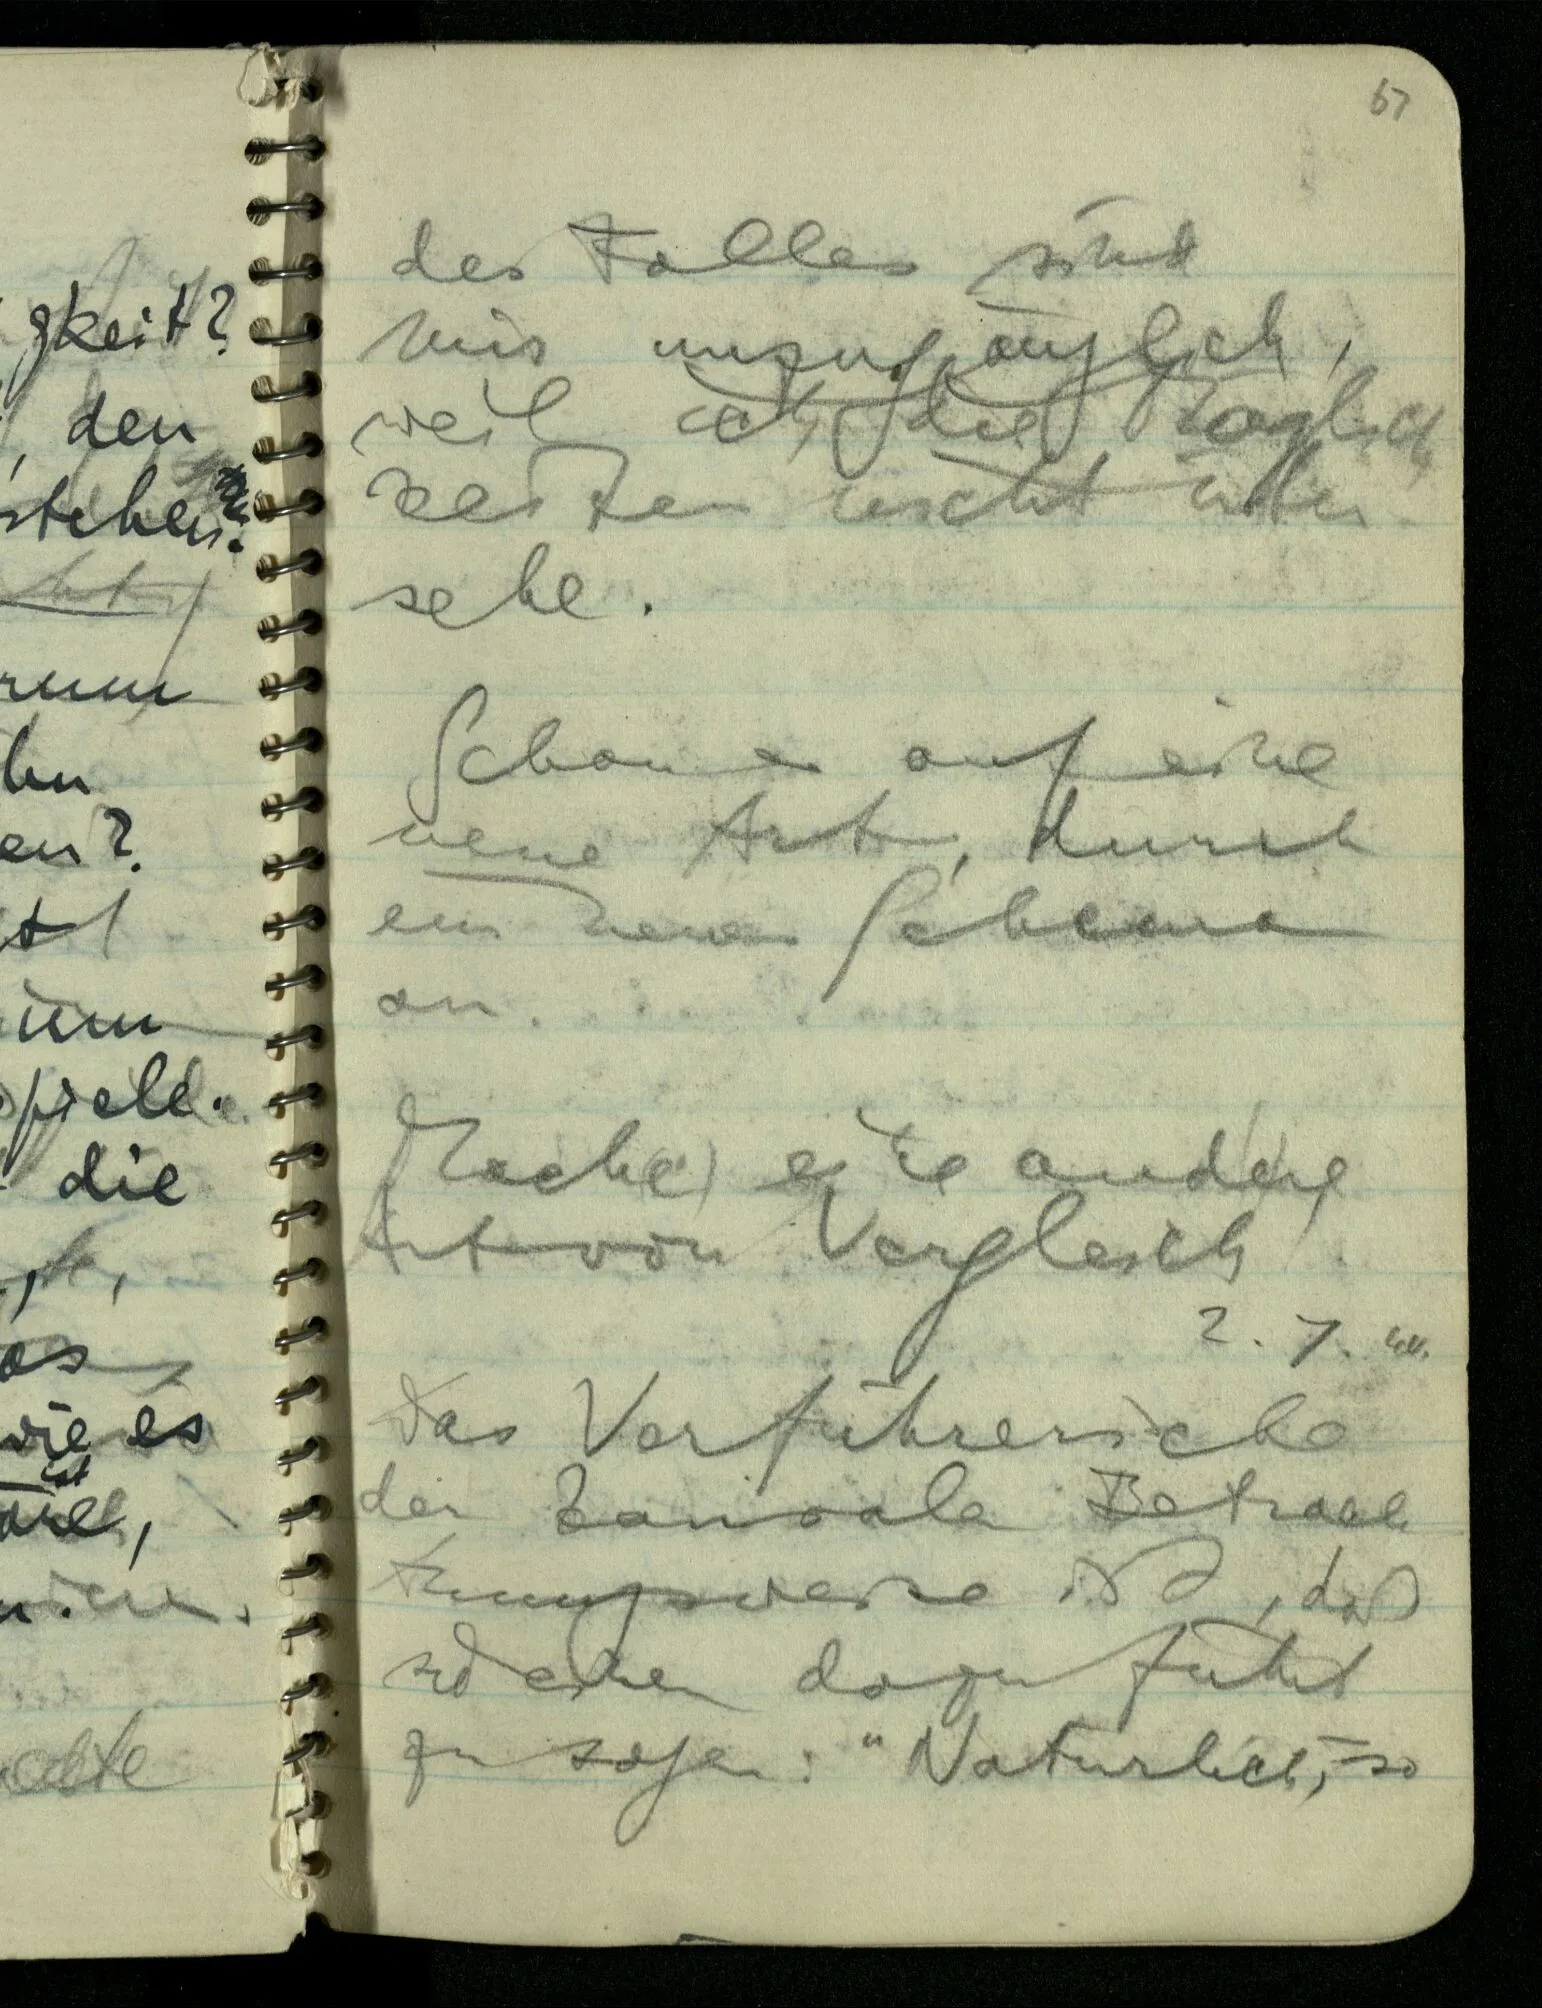 gkeit?
, den
stehen.
rum
hn
en?
st
um
spiele.
die
as
wie es
ist
wäre,
67
des Falles sind
mir unzugänglich,
weil ich die Möglich
keiten nicht über-
sehe.
Schau es auf eine
neue Art, durch
ein neues Schema
an.
Mache eine andere
Art von Vergleich
2. 7.
Das Verführerische
der kausalen Betrach
tungsweise ist, daß
sie einen dazu führt
zu sagen: "Natürlich, – so